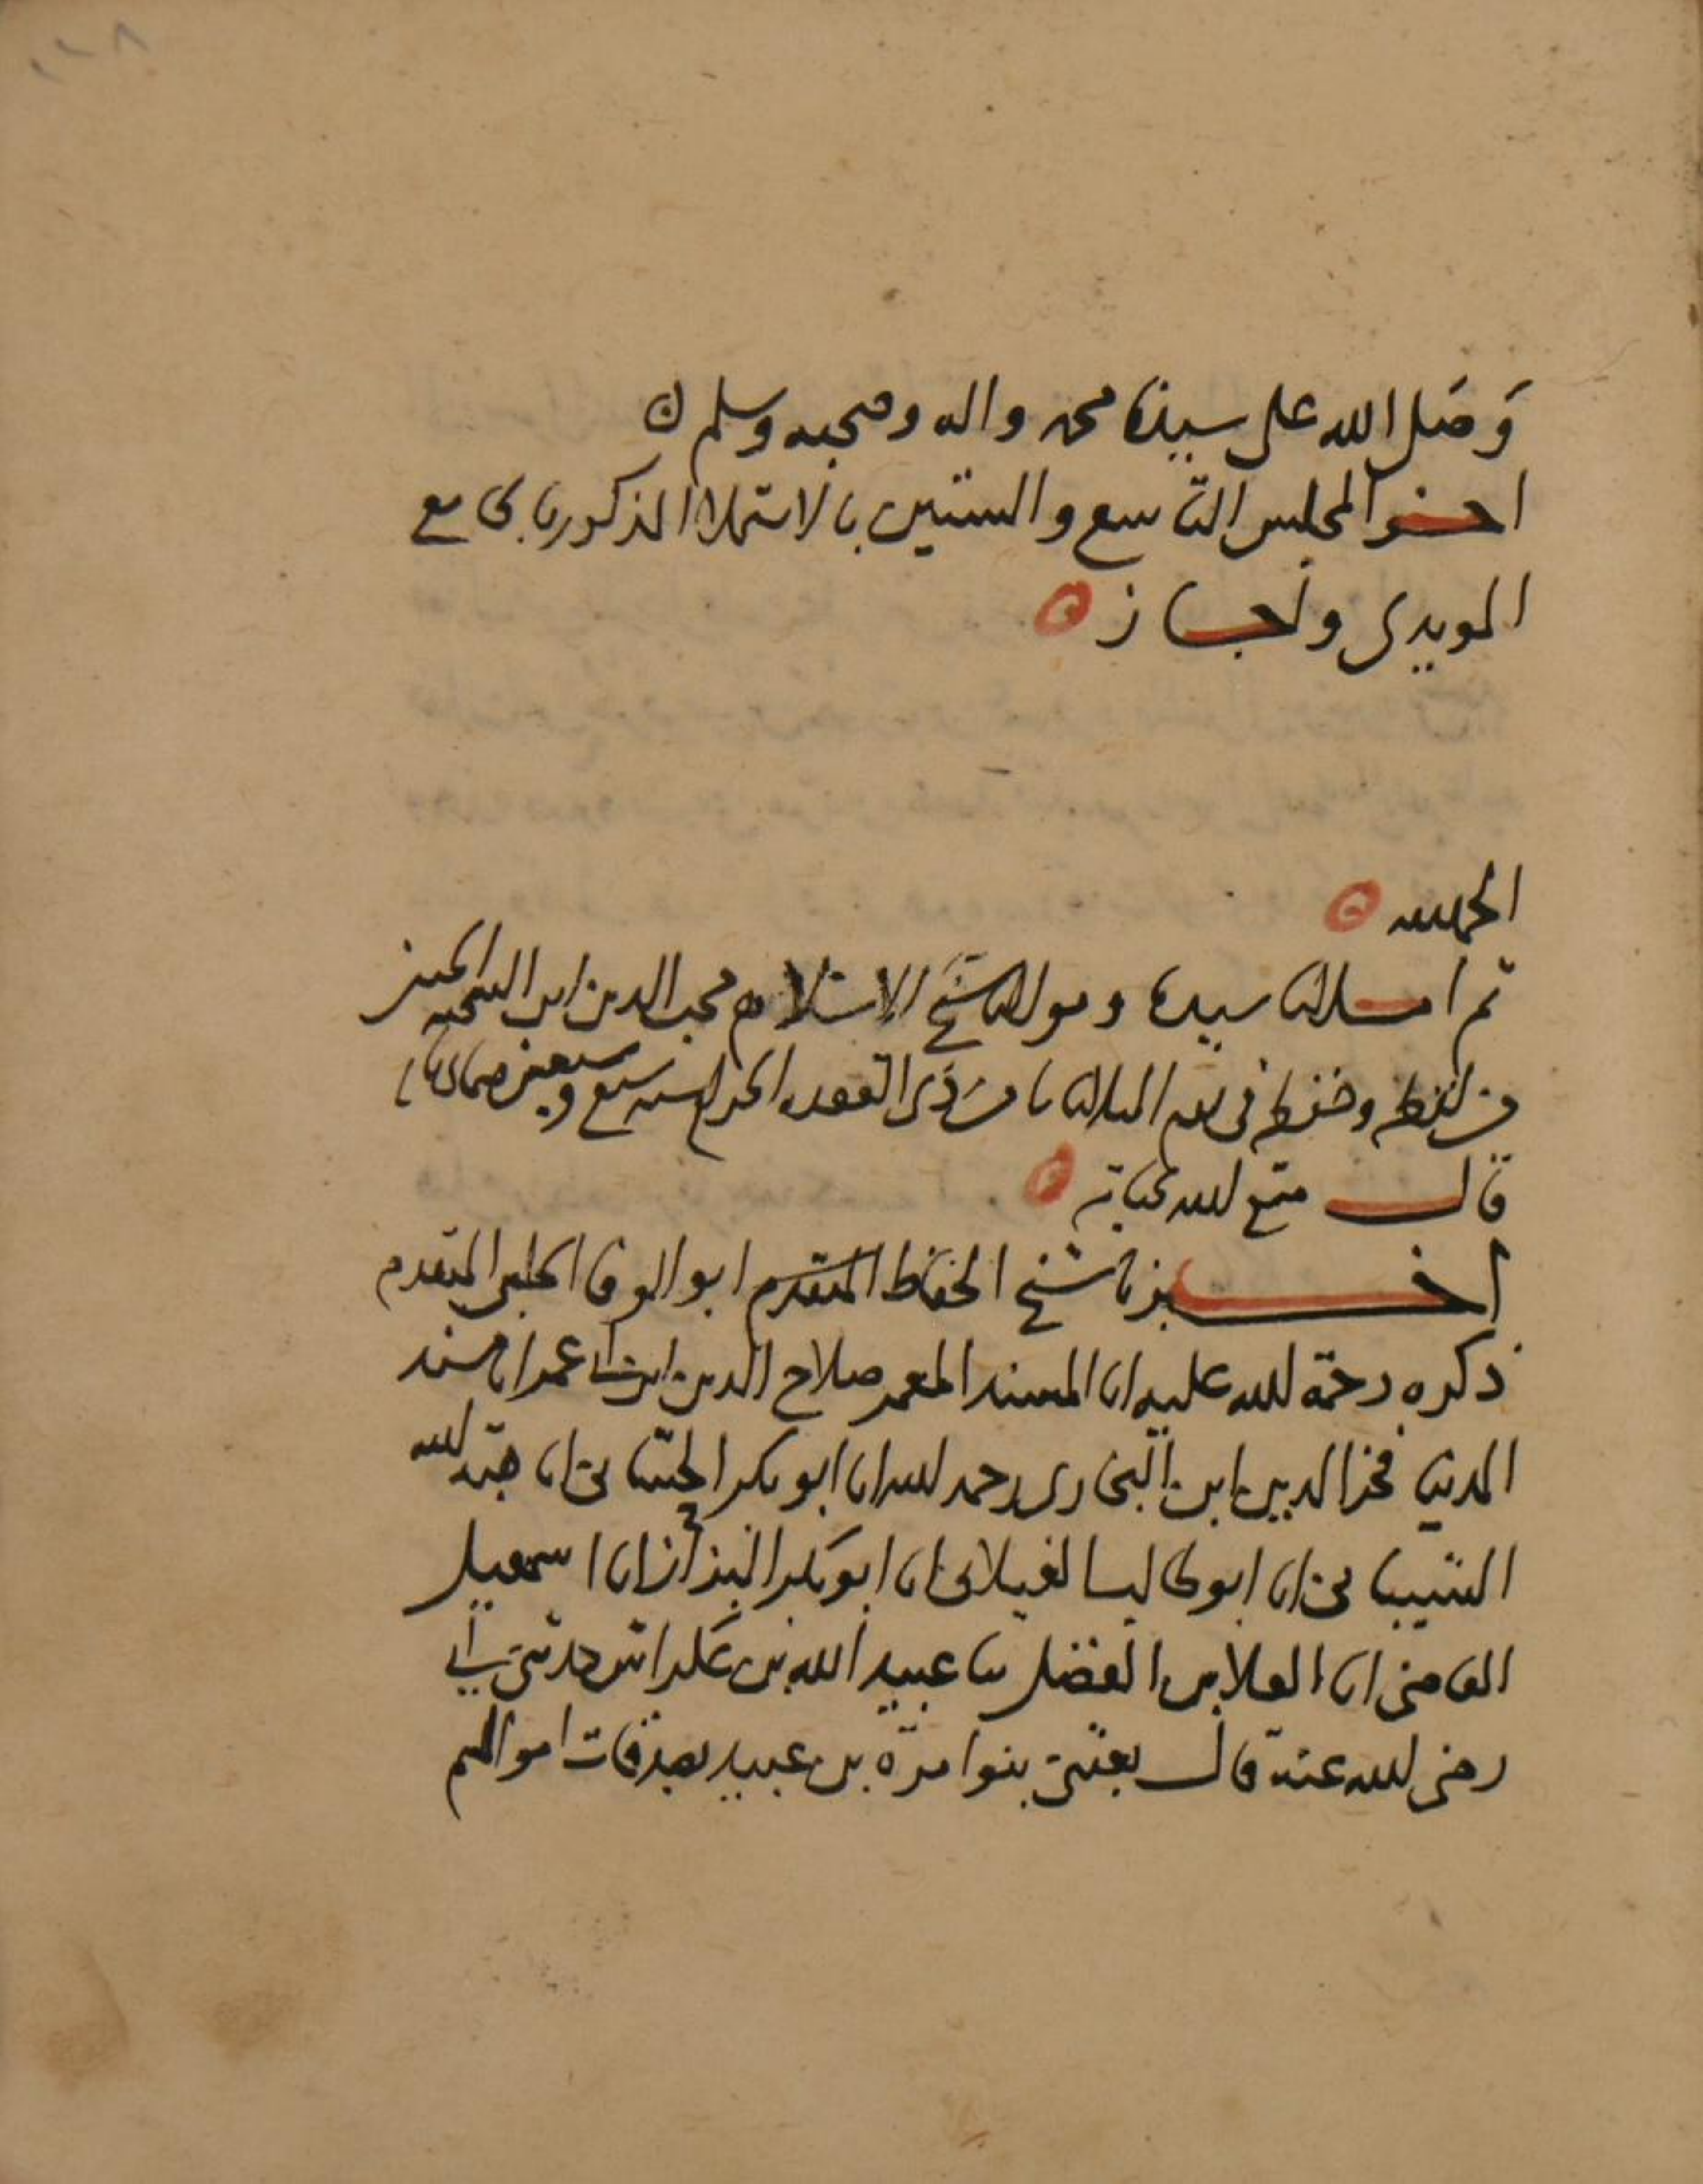 وصلى الله على سيدنا محمد واله وصحبه وسلم
اخر المجلس التاسع والستين بالاستملا المذكور بالجامع
المويدى واجاز
الحمد لله
ثم املانا سيدنا ومولانا شيخ الاسلام محب الدين ابن الشحنه
من لفظه وحفظه فى يوم الثلاثا ذى القعده الحرام سنه سبع وسبعين
قال متع الله بحياته
اخبرنا شيخ الحفاظ المتقدم ابو الوفا الحلبى المتقدم
ذكره رحمة الله عليه انا المسند المعمر صلاح الدين ابن ابى عمر انا مسند
الدنيا فخر الدين ابن البخارى رحمه الله انا ابو بكر انا هبة الله
الشيبانى انا ابو طالب الغيلانى انا ابو بكر البزاز انا اسمعيل
القاضى انا العلا بن الفضل نا عبيد الله بن عكراش حدثنى ابى
رضى الله عنه قال بعثنى بنوا مرة بن عبيد بصدقات اموالهم